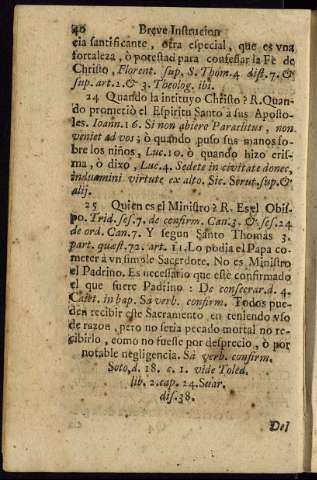 40 Breve Instrucion
cia santificante, otra especial, que es vna
fortaleza, ò potestad para confessar la Fè de
Christo, Florent. sup. S. Thom. 4. dist. 7. &
sup. art. 2. & 3. Theolog. ibi.
24 Quando la intituyo Christo? R. Quan-
do prometiò el Espiritu Santo à sus Aposto-
les. Ioann. 16. Si non abiero Paraclitus, non
veniet ad vos; ò quando puso sus manos so-
bre los niños, Luc. 10. ò quando hizo cris-
ma, ò dixo, Luc. 4. Sedete in civitate donec,
induamini virtute ex alto. Sic. Sotut. sup. &
alij.
25 Quien es el Ministro? R. Es el Obis-
po. Trid. ses. 7. de confirm. Can. 3. & ses. 24
de ord. Can. 7. Y segun Santo Thomàs 3.
part. quæst. 72. art. 11. Lo podia el Papa co-
meter à vn simple Sacerdote. No es Ministro
el Padrino. Es necessario que estè confirmado
el que fuere Padrino: De consecrar. d. 4.
Caiet. in hap. Sa verb. confirm. Todos pue-
den recibir este Sacramento, en teniendo vso
de razon, pero no seria pecado mortal no re-
cibirlo, como no fuesse por desprecio, ò por
notable negligencia. Sa verb. confirm.
Soto, d. 18. c. 1. vide Toled.
lib. 2. cap. 24. Sciar.
dis. 38.
Del